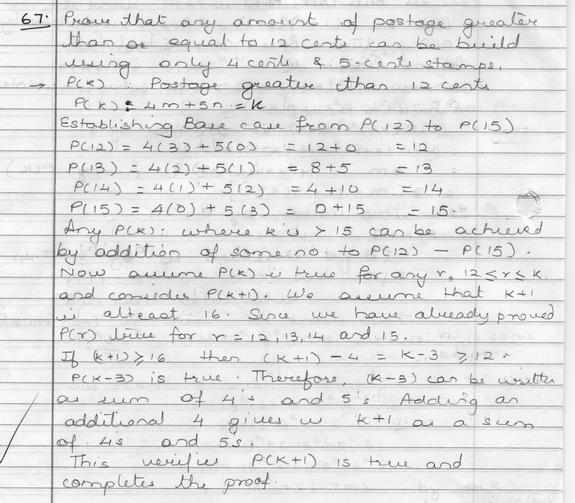 67. Prove that any amount of postage greater
than or equal to 12 cents can be build
using only 4 cents & 5-cents stamps.
→ P(K) : Postage greater than 12 cents
P(K) : 4m+5n = K
Establishing Base case from P(12) to P(15)
P(12) = 4(3) + 5(0) = 12+0 = 12
P(13) = 4(2) + 5(1) = 8+5 = 13
P(14) = 4(1) + 5(2) = 4+10 = 14
P(15) = 4(0) + 5(3) = 0+15 = 15.
Any P(K): where K is > 15 can be achieved
by addition of some no. to P(12) - P(15).
Now assume P(K) is true for any r, 12≤r≤K
and consider P(K+1). We assume that K+1
is atleast 16. Since we have already proved
P(r) true for r = 12, 13, 14 and 15.
If (K+1) ≥ 16 then (K+1) - 4 = K-3 ≥ 12.
P(K-3) is true. Therefore, (K-3) can be written
as sum of 4's and 5's Adding an
additional 4 gives us K+1 as a sum
of 4s and 5s.
This verifies P(K+1) is true and
completes the proof.